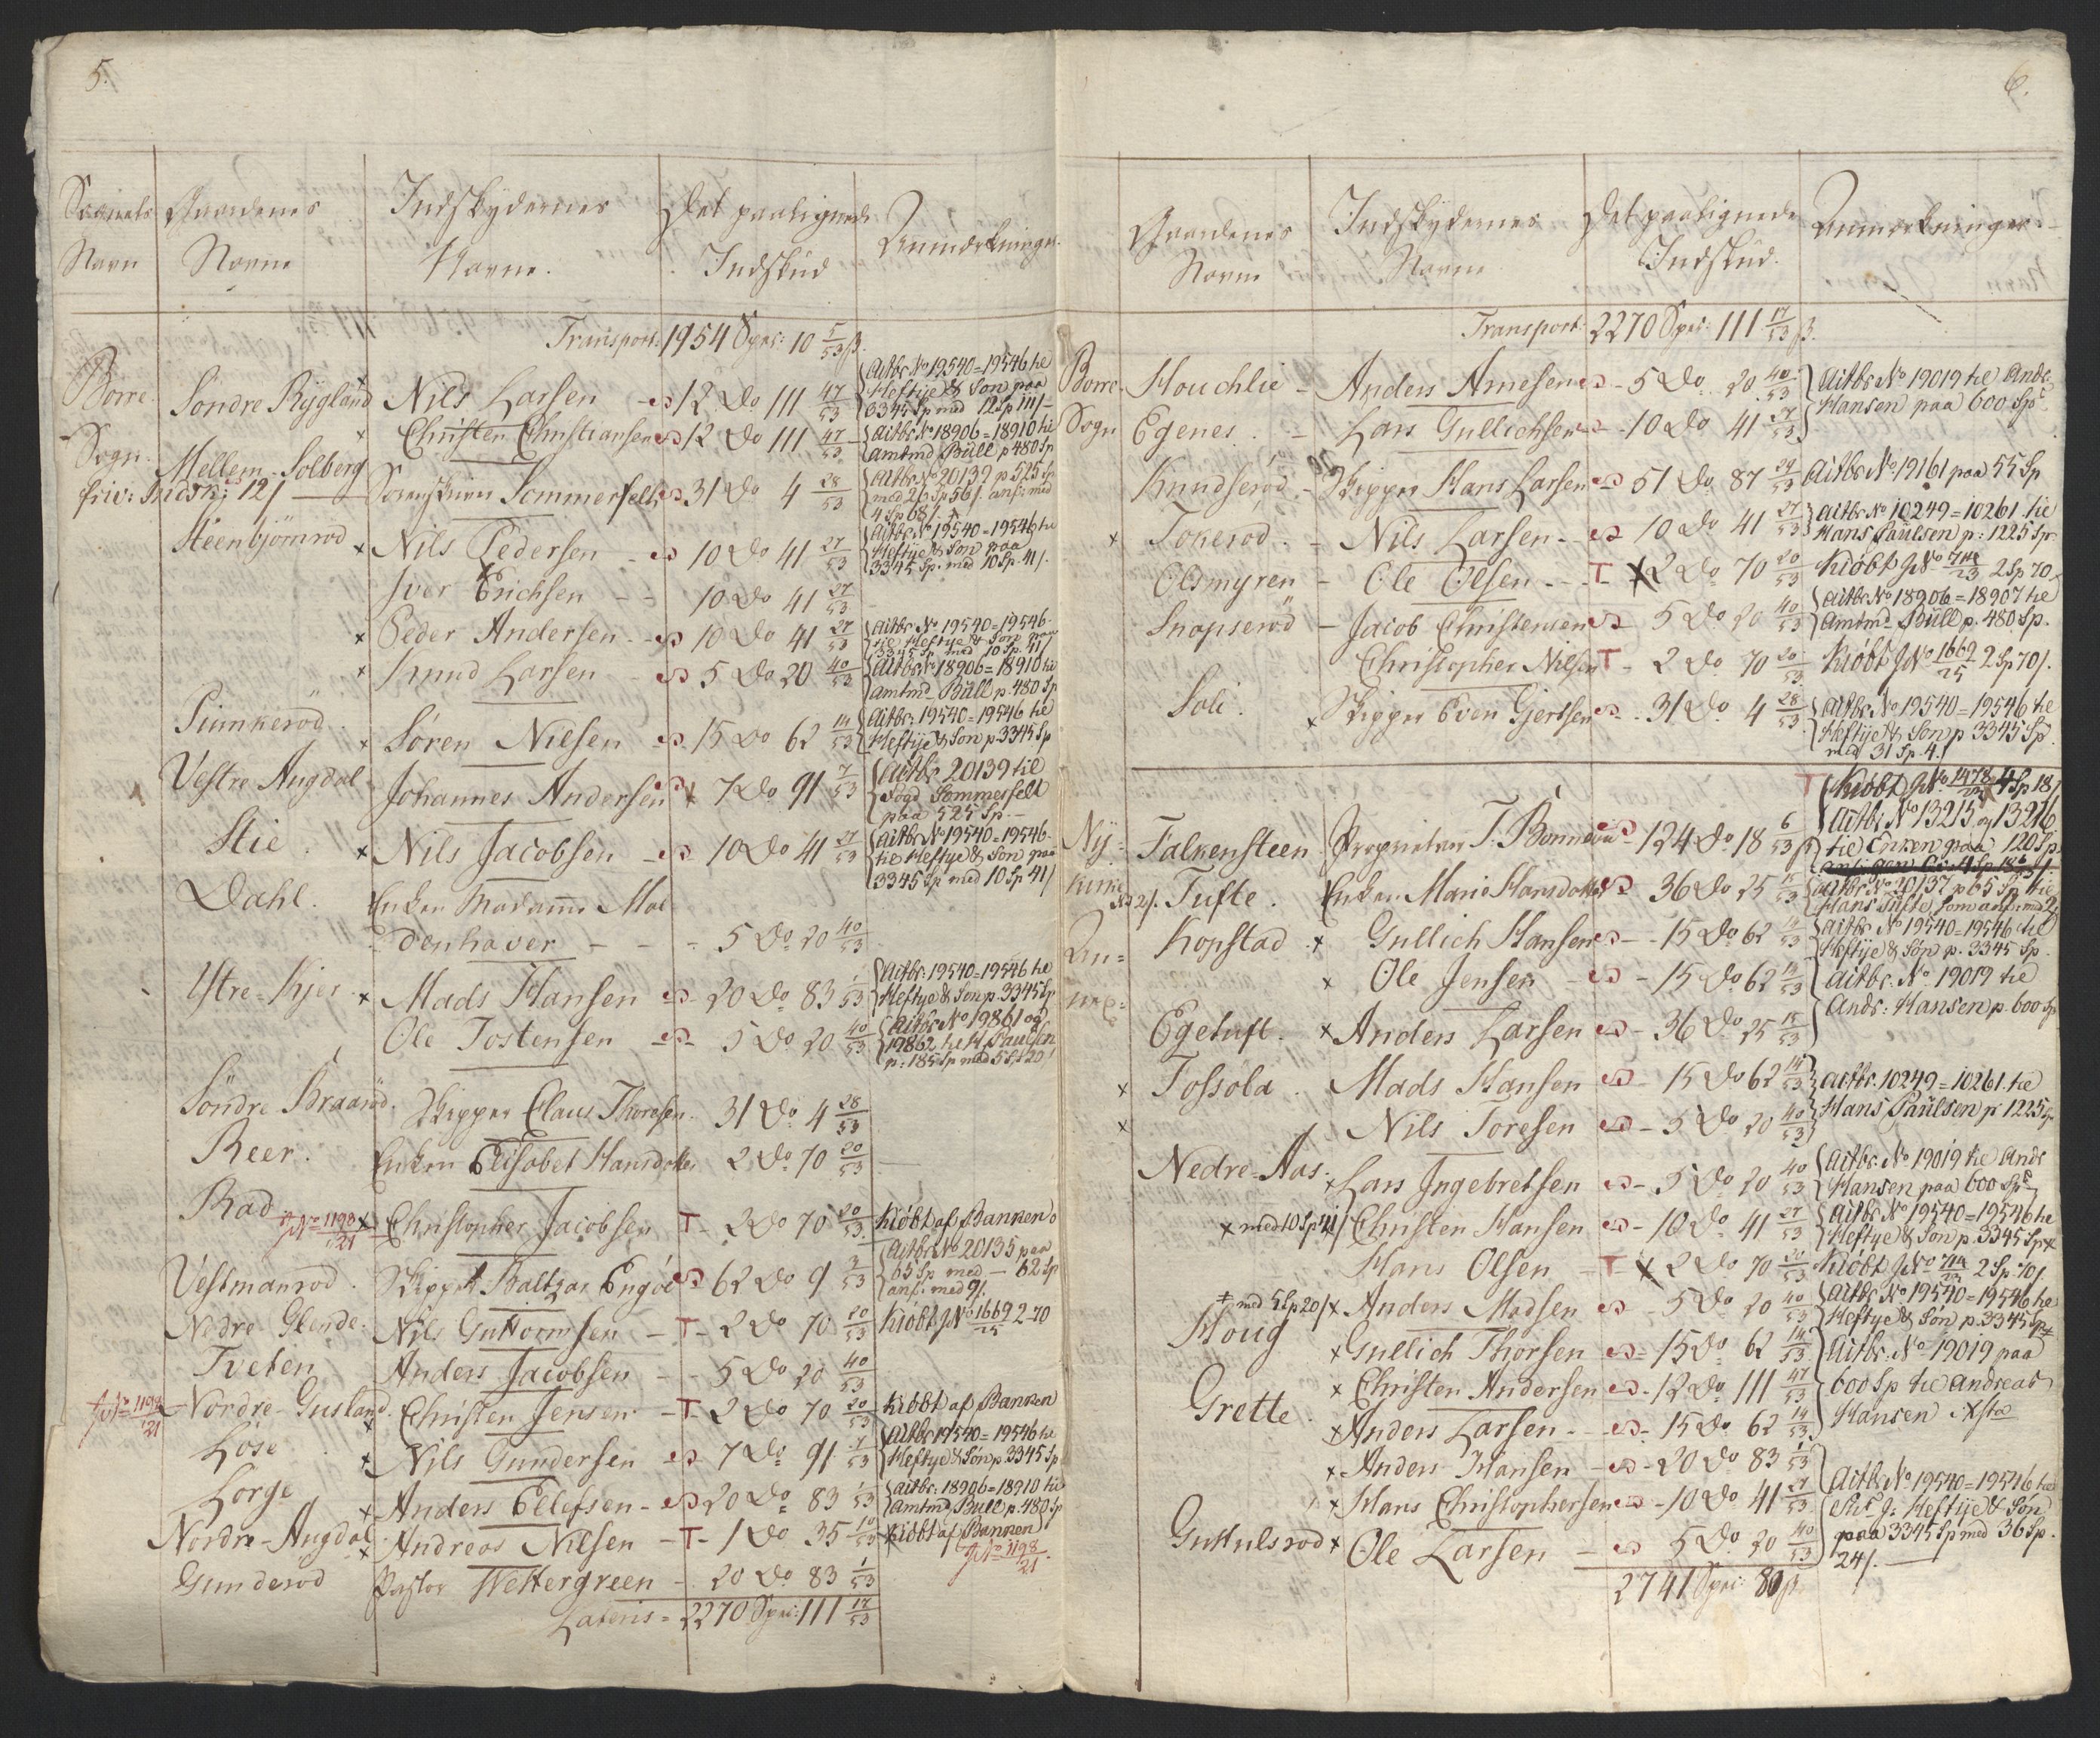 5.
Sognets Gaardenes Indskydernes Det paalignede Anmærkninger.
Navn Navne Navne. Indskud
Transport: 1954 Spec: 10 5/53 ß.
Borre Söndre Rÿgland Nils Larsen 12 Do 111 47/53 {Aitbr. No 19540=19546 til Heftye & Søn paa 3345 Sp med 12 Sp 111/-
Sogn. Christen Christiansen 12 Do 111 47/53 {Aitbr. No 18906=18910 til Amtmd Büll p 480 Sp
Mellem-Solberg Sorenskriver Sommerfelt 31 Do 4 28/53 {Aitbr No 20139 p 525 Sp med 26 Sp 56/. ansf: med 4 Sp 68/.
friv: Indsk: 12/
Steenbjörnröd x Nils Pedersen 10 Do 41 27/53 {Aitbr. No 19540=19546 til Heftye & Søn paa 3345 Sp. med 10 Sp. 41/.
Iver Erichsen - - 10 Do 41 27/53
x Peder Andersen - 10 Do 41 27/53 {Aitbr. No 19540=19546. til Heftye & Søn paa 3345 Sp med 10 Sp. 41/
x Knud Larsen 5 Do 20 40/53 {Aitbr. No 18906=18910 til Amtmd Büll p. 480 Sp
Siunkeröd x Sören Nielsen 15 Do 62 14/53 {Aitbr: 19540=19546 til Heftye & Søn p. 3345 Sp
Vestre Augdal Johannes Andersen x 7 Do 91 7/53 {Aitbr. 20139 til Fogd Sommerfelt paa 525 Sp.
Stie. x Nils Jacobsen 10 Do 41 27/53 {Aitbr No 19540=19546. til Heftye & Søn paa 3345 Sp med 10 Sp 41/
Dahl. Enken Madamme Mol
denhaver - - - 5 Do 20 40/53
Ystre-Kjer. x Mads Hansen 20 Do 83 1/53 {Aitbr. 19540=19546 til Heftye & Søn p. 3345 Sp
Ole Tostensen 5 Do 20 40/53 {Aitbr. No 19861 og 19862 til H. Paulsen p: 185 Sp med 5 Sp 20/
Söndre Braaröd. Skipper Claus Thoresen. 31 Do 4 28/53
Reer. Enken Elisabet Hansdatter 2 Do 70 20/53
Rad No 1198/21 x Christopher Jacobsen T- 2 Do 70 20/53 Kiöbt af Banken
Vestmanröd. Skipper Baltzar Engöe 62 Do 9 2/53 {Aitbr. No 20135 paa 65 Sp med - 62 Sp ansf: med 9/.
Nedre-Glende. Nils Guttormsen - T- 2 Do 70 20/53 Kiöbt No 1669/25 2-70
Tveten Anders Jacobsen - - 5 Do 20 40/53
No 1198/21 Nordre-Gusland. Christen Jensen - T- 2 Do 70 20/53 Kiöbt af Banken
Löse x Nils Gundersen 7 Do 91 7/53 {Aitbr 19540=19546 til Heftye & Søn p. 3345 Sp
Lörge x Anders Ellefsen - 20 Do 83 1/53 {Aitbr: 18906=18910 til Amtmd Bull p. 480 Sp
Nordre-Augdal x Andreas Nilsen - T- 1 Do 35 10/53 Kiöbt af Banken No 1198/21
Gunderöd Pastor Wettergreen - 20 Do 83 1/53
Lateris = 2270 Spec: 111 17/53
6.
Gaardenes Indskydernes Det paalignede Anmærkninger.
Navne Navne Indskud.
Transport. 2270 Spec: 111 17/53 ß.
Borre- Houchlie - Anders Arnesen 5 Do 20 40/53 {Aitbr No 19019 til Andr. Hansen paa 600 Sp
Sogn Egenes. - Lars Gullichsen 10 Do 41 27/53
Knudseröd. - Skipper Hans Larsen 51 Do 87 29/53 Aitbr No 19161 paa 55 Sp
x Toneröd. - Nils Larsen - 10 Do 41 27/53 {Aitbr No 10249=10261 til Hans Paülsen p: 1225 Sp.
Olsmyren - Ole Olsen - - T x 2 Do 70 20/53 Kiöbt No 714/23 2 Sp 70
Snopseröd - Jacob Christensen 5 Do 20 40/53 {Aitbr No 18906=18907 til Amtmd Büll p. 480 Sp.
Christopher Nilsen T- 2 Do 70 20/53 Kiöbt No 1669/25 2 Sp 70/.
Soli. x Skipper Even Gjertsen 31 Do 4 28/53 {Aitbr No 19540=19546 til Heftye & Søn p 3345 Sp. med 31 Sp. 4/
Ny- Falkensteen Proprietær T. Bonnevie 124 Do 18 6/53 T {Kiöbt No 1478 4 Sp 18/ {Aitbr No 13215 og 13216 til Enken paa 120 Sp
kirke 2/. Tufte. Enken Marie Hansdatter 36 Do 25 15/53 {Aitbr No 20137 p 65 Sp til Hans Tufte som ansf: med 2/
An= Kopstad. x Gullich Hansen - 15 Do 62 14/53 {Aitbr No 19540=19546 til Heftye & Søn p. 3345 Sp.
nex: x Ole Jensen - 15 Do 62 14/53 {Aitbr. No 19019 til Andr: Hansen p. 600 Sp
Egetuft. x Anders Larsen - 36 Do 25 15/53
x Fossola. Mads Hansen - 15 Do 62 14/53 {Aitbr. 10249=10261. til Hans Paülsen p 1225 Sp
x Nils Toresen - 5 Do 20 40/53
Nedre-Aas. x Lars Ingebretsen - 5 Do 20 40/53 {Aitbr. No 19019 til Andr Hansen paa 600 Sp
x med 10 Sp 41/ Christen Hansen - 10 Do 41 27/53 {Aitbr No 19540=19546 til Heftye & Søn p. 3345 Sp x
Hans Olsen - T- x 2 Do 70 20/53 Kiöbt No 714/23 2 Sp 70/.
‡ med 5 Sp 20/ x Anders Madsen - 5 Do 20 40/53 {Aitbr No 19540=19546 til Heftye & Søn p. 3345 Sp ‡
Houg x Gullich Thorsen - 15 Do 62 14/53 {Aitbr. No 19019 paa
x Christen Andersen - 12 Do 111 47/53 600 Sp til Andreas
Grette. x Anders Larsen - - 15 Do 62 14/53 Hansen
x Anders Hansen - 20 Do 83 1/53
x Hans Christophersen - 10 Do 41 27/53 {Aitbr No 19540=19546 til
Guttulsröd x Ole Larsen - 5 Do 20 40/53 Heftye & Søn paa 3345 Sp med 36 Sp. 24/.
2741 Spec: 80 ß.